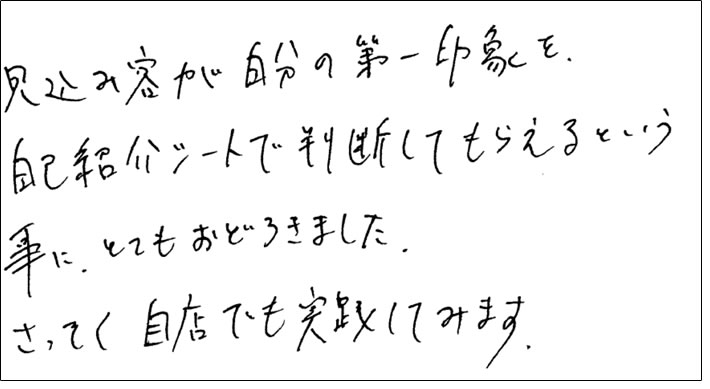 見込み客が自分の第一印象を、
自己紹介シートで判断してもらえるという
事に、とてもおどろきました。
さっそく自店でも実践してみます。